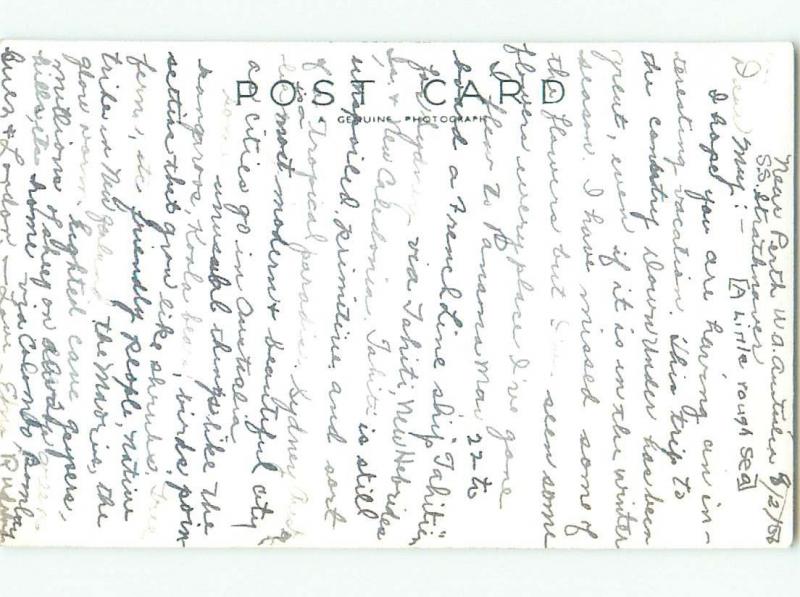 POST CARD
A GENUINE PHOTOGRAPH
Near Perth W.A. Australia 8/2/50
SS. Strathnaver
[A little rough sea]
Dear May: -
I hope you are having an in-
teresting vacation. This trip to
the country Down Under has been
great, even if it is in the winter
season. I have missed some of
the flowers but seen some
flowers everyplace I've gone
I flew to Panama May 22 to
board a French Line ship "Tahitien"
for Sydney via Tahiti New Hebrides
Is. & New Caledonia. Tahiti is still
unspoiled, primitive and sort
of a tropical paradise. Sydney
most modern & beautiful city
as cities go in Australia
some unusual things like the
kangaroos, Koala bears, birds, poin-
settias that grow like shrubs, tree
ferns, etc friendly people, native
tribe in New Zealand the Maoris, the
glow worm lighted cave, geysers,
millions of sheep on always green
hills, etc home via Colombo, Bombay
Suez & London - Love -